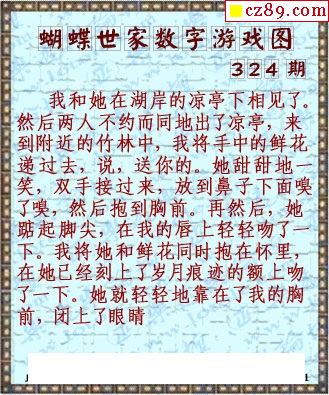 cz89.com
蝴蝶世家数字游戏图
324 期
我和她在湖岸的凉亭下相见了。
然后两人不约而同地出了凉亭，来
到附近的竹林中，我将手中的鲜花
递过去，说，送你的。她甜甜地一
笑，双手接过来，放到鼻子下面嗅
了嗅，然后抱到胸前。再然后，她
踮起脚尖，在我的唇上轻轻吻了一
下。我将她和鲜花同时抱在怀里，
在她已经刻上了岁月痕迹的额上吻
了一下。她就轻轻地靠在了我的胸
前，闭上了眼睛